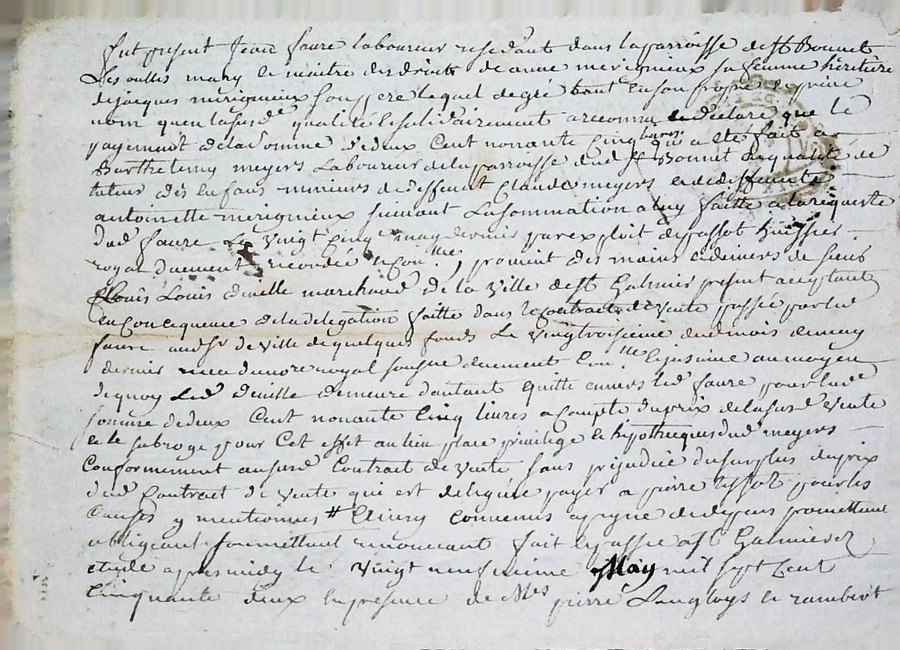 fut present Jean faure laboureur residant dans la parroisse de st Bonnet
Les oulles mary et maitre des droits de anne merigneux sa femme heritiere
de jacques merigneux son pere lequel de gré tant en son propre et privé
nom qu'en la susde qualité et solidairement a reconnu et declaré que le
payement de la somme de deux cent nonante cinq livres qui a eté fait a
Barthelemy meyers Laboureur de la parroisse dud st Bonnet en qualité de
tuteur des enfans mineurs de deffunt Claude meyers et de deffuncte
antoinette merigneux suivant la sommation a luy faitte a la requeste
dud faure Le vingt cinq may dernier par exploit de passot huissier
royal duement controllé provient des mains et deniers de sieur
Louis deville marchand de la ville de st Galmier present acceptant
en consequence de la delegation faitte dans le contract de vente passé par led
faure aud sr de ville de quelques fonds Le vingtroisieme dud mois de may
dernier receu du nore royal soussigné duement conllé au moyen
de quoy Led deville demeure d'autant quitte envers led faure pour lad
somme de deux cent nonante cinq livres a compte du prix de la susd vente
et le subroge pour cet effet au lieu place privilege et hypotheques dud meyers
conformement au susd contract de vente sans prejudice du surplus du prix
dud contract de vente qui est delegué payer a pierre pour les
causes y mentionnées ainsy convenu a peyne de depens promettant
obligeant soumettant renonceant fait et passé a st Galmier
etude apres midy le vingt neufvieme May mil sept cent
cinquante deux en presence de Mes pierre Langloys et rambert